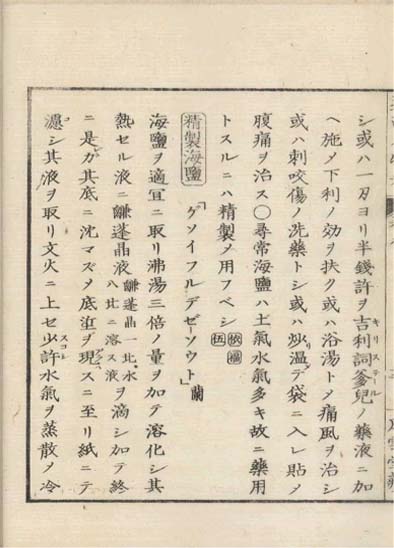 シ或ハ一刄ヨリ半錢許ヲ吉利詞爹兒ノ藥液ニ加
キリステール
ヘ施メ下利ノ効ヲ扶ク或ハ浴湯トメ痛風ヲ治シ
或ハ刺咬傷ノ洗藥トシ或ハ炒温テ袋ニ入レ貼メ
腹痛ヲ治ス〇尋常海鹽ハ土氣水氣多キ故ニ藥用
トスルニハ精製メ用フベシ
精製海鹽
「ゲソイフルデゼーソウト」蘭
海鹽ヲ適宜ニ取リ沸湯三倍ノ量ヲ加テ溶化シ其
熱セル液ニ鹻蓬晶液鹻蓬晶一比水八比ニ溶ス液ヲ滴シ加テ終
ニ是ガ其底ニ沈マズメ底ヲ現スニ至リ紙ニテ
濾シ其液ヲ取リ文火ニ上セ少許水氣ヲ蒸散メ冷
スコシ